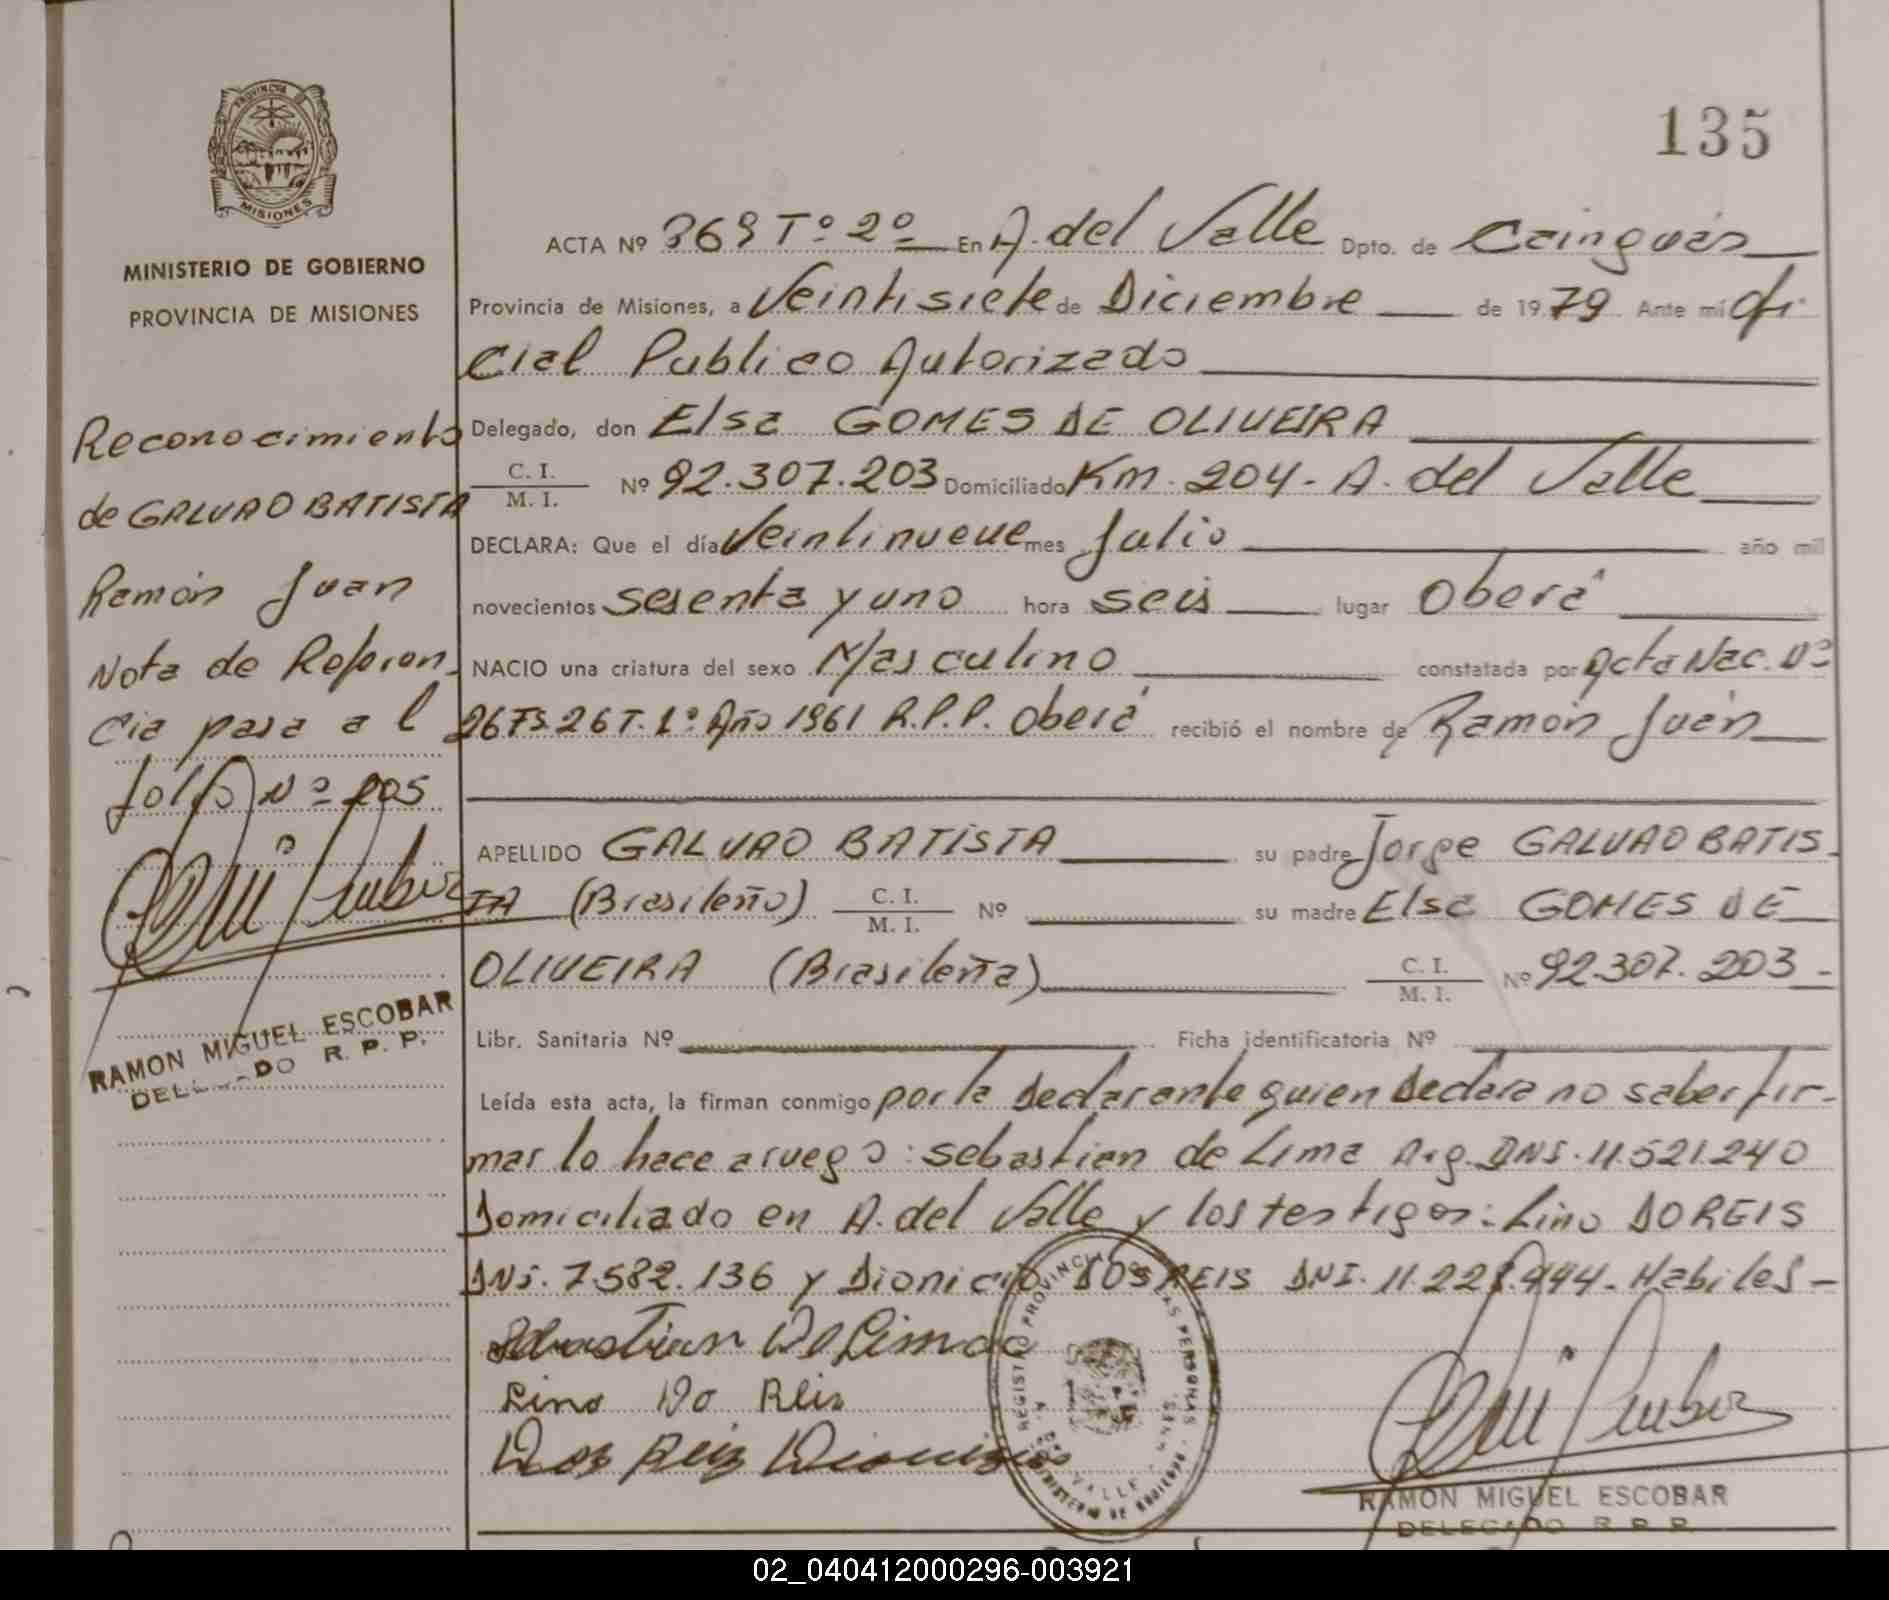 PROVINCIA D
MISIONES
MINISTERIO DE GOBIERNO
PROVINCIA DE MISIONES
Reconocimiento
de GALVAO BATISTA
Ramón Juan
Nota de Referen-
cia pasa al
folio Nº 205
RAMON MIGUEL ESCOBAR
DELEGADO R. P. P.
135
ACTA Nº 369 Tº 2º En A. del Valle Dpto. de Cainguás
Provincia de Misiones, a Veintisiete de Diciembre de 1979 Ante mí Ofi-
cial Publico Autorizado
Delegado, don Elsa GOMES DE OLIVEIRA
C. I.
M. I. Nº 92.307.203 Domiciliado Km. 204 - A. del Valle
DECLARA: Que el día Veintinueve mes Julio año mil
novecientos sesenta y uno hora seis lugar Oberá
NACIO una criatura del sexo Masculino constatada por Acta Nac. Nº
267 Fs 26 T. 1º Año 1961 R.P.P. Oberá recibió el nombre de Ramón Juan
APELLIDO GALVAO BATISTA su padre Jorge GALVAO BATIS-
TA (Brasileño) C. I. M. I. Nº su madre Elsa GOMES DE
OLIVEIRA (Brasileña) C. I. M. I. Nº 92.307.203 -
Libr. Sanitaria Nº Ficha identificatoria Nº
Leída esta acta, la firman conmigo por la declarante quien declara no saber fir-
mar lo hace a ruego: sebastian de Lima Arg. DNI. 11.521.240
Domiciliado en A. del Valle y los testigos: Lino DOREIS
DNI. 7.582.136 y Dionicio DOS REIS DNI. 11.228.994 - Habiles -
Sebastian De Lima
Lino Do Reis
Dos Reis Dionicio
REGISTRO PROVINCIAL DE LAS PERSONAS
A. DEL VALLE
MINISTERIO DE GOBIERNO
RAMON MIGUEL ESCOBAR
DELEGADO R. P. P.
02_040412000296-003921